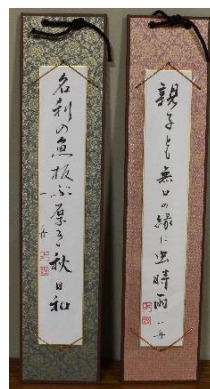 親子とも無口の縁に虫時雨 一舟
名刹の魚板ぶ厚き秋日和
一舟